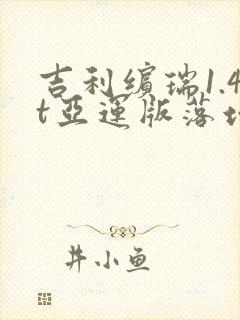 吉利缤瑞1.4
t亞運版落
井小鱼